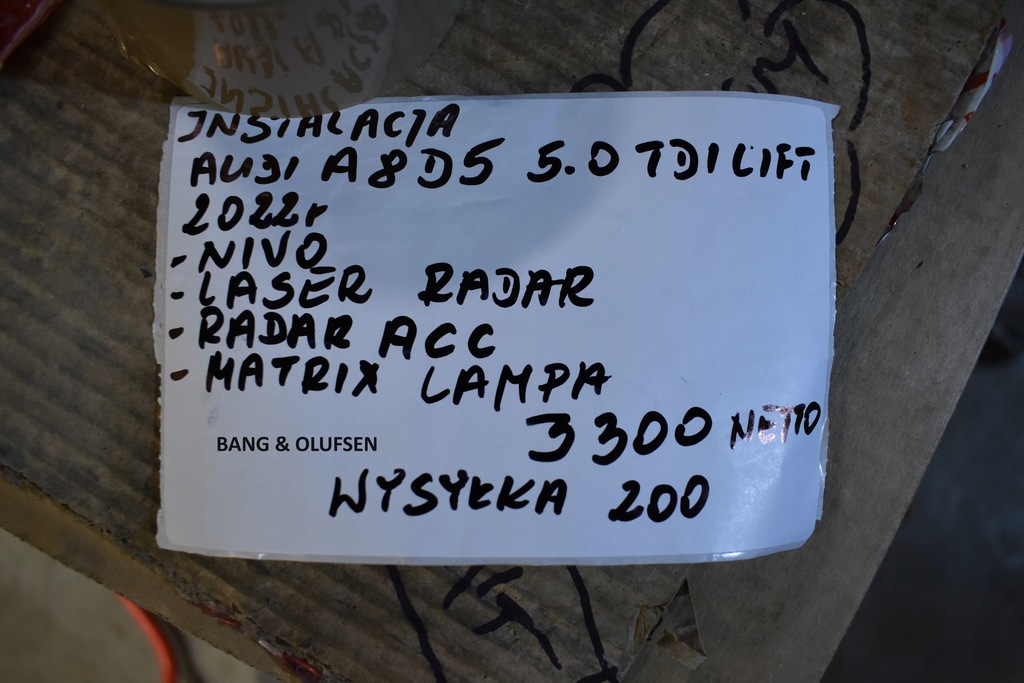 INSTALACJA
AUDI A8D5 5.0 TDI LIFT
2022r
- NIVO
- LASER RADAR
- RADAR ACC
- MATRIX LAMPA
3300 NETTO
BANG & OLUFSEN
WYSYŁKA 200